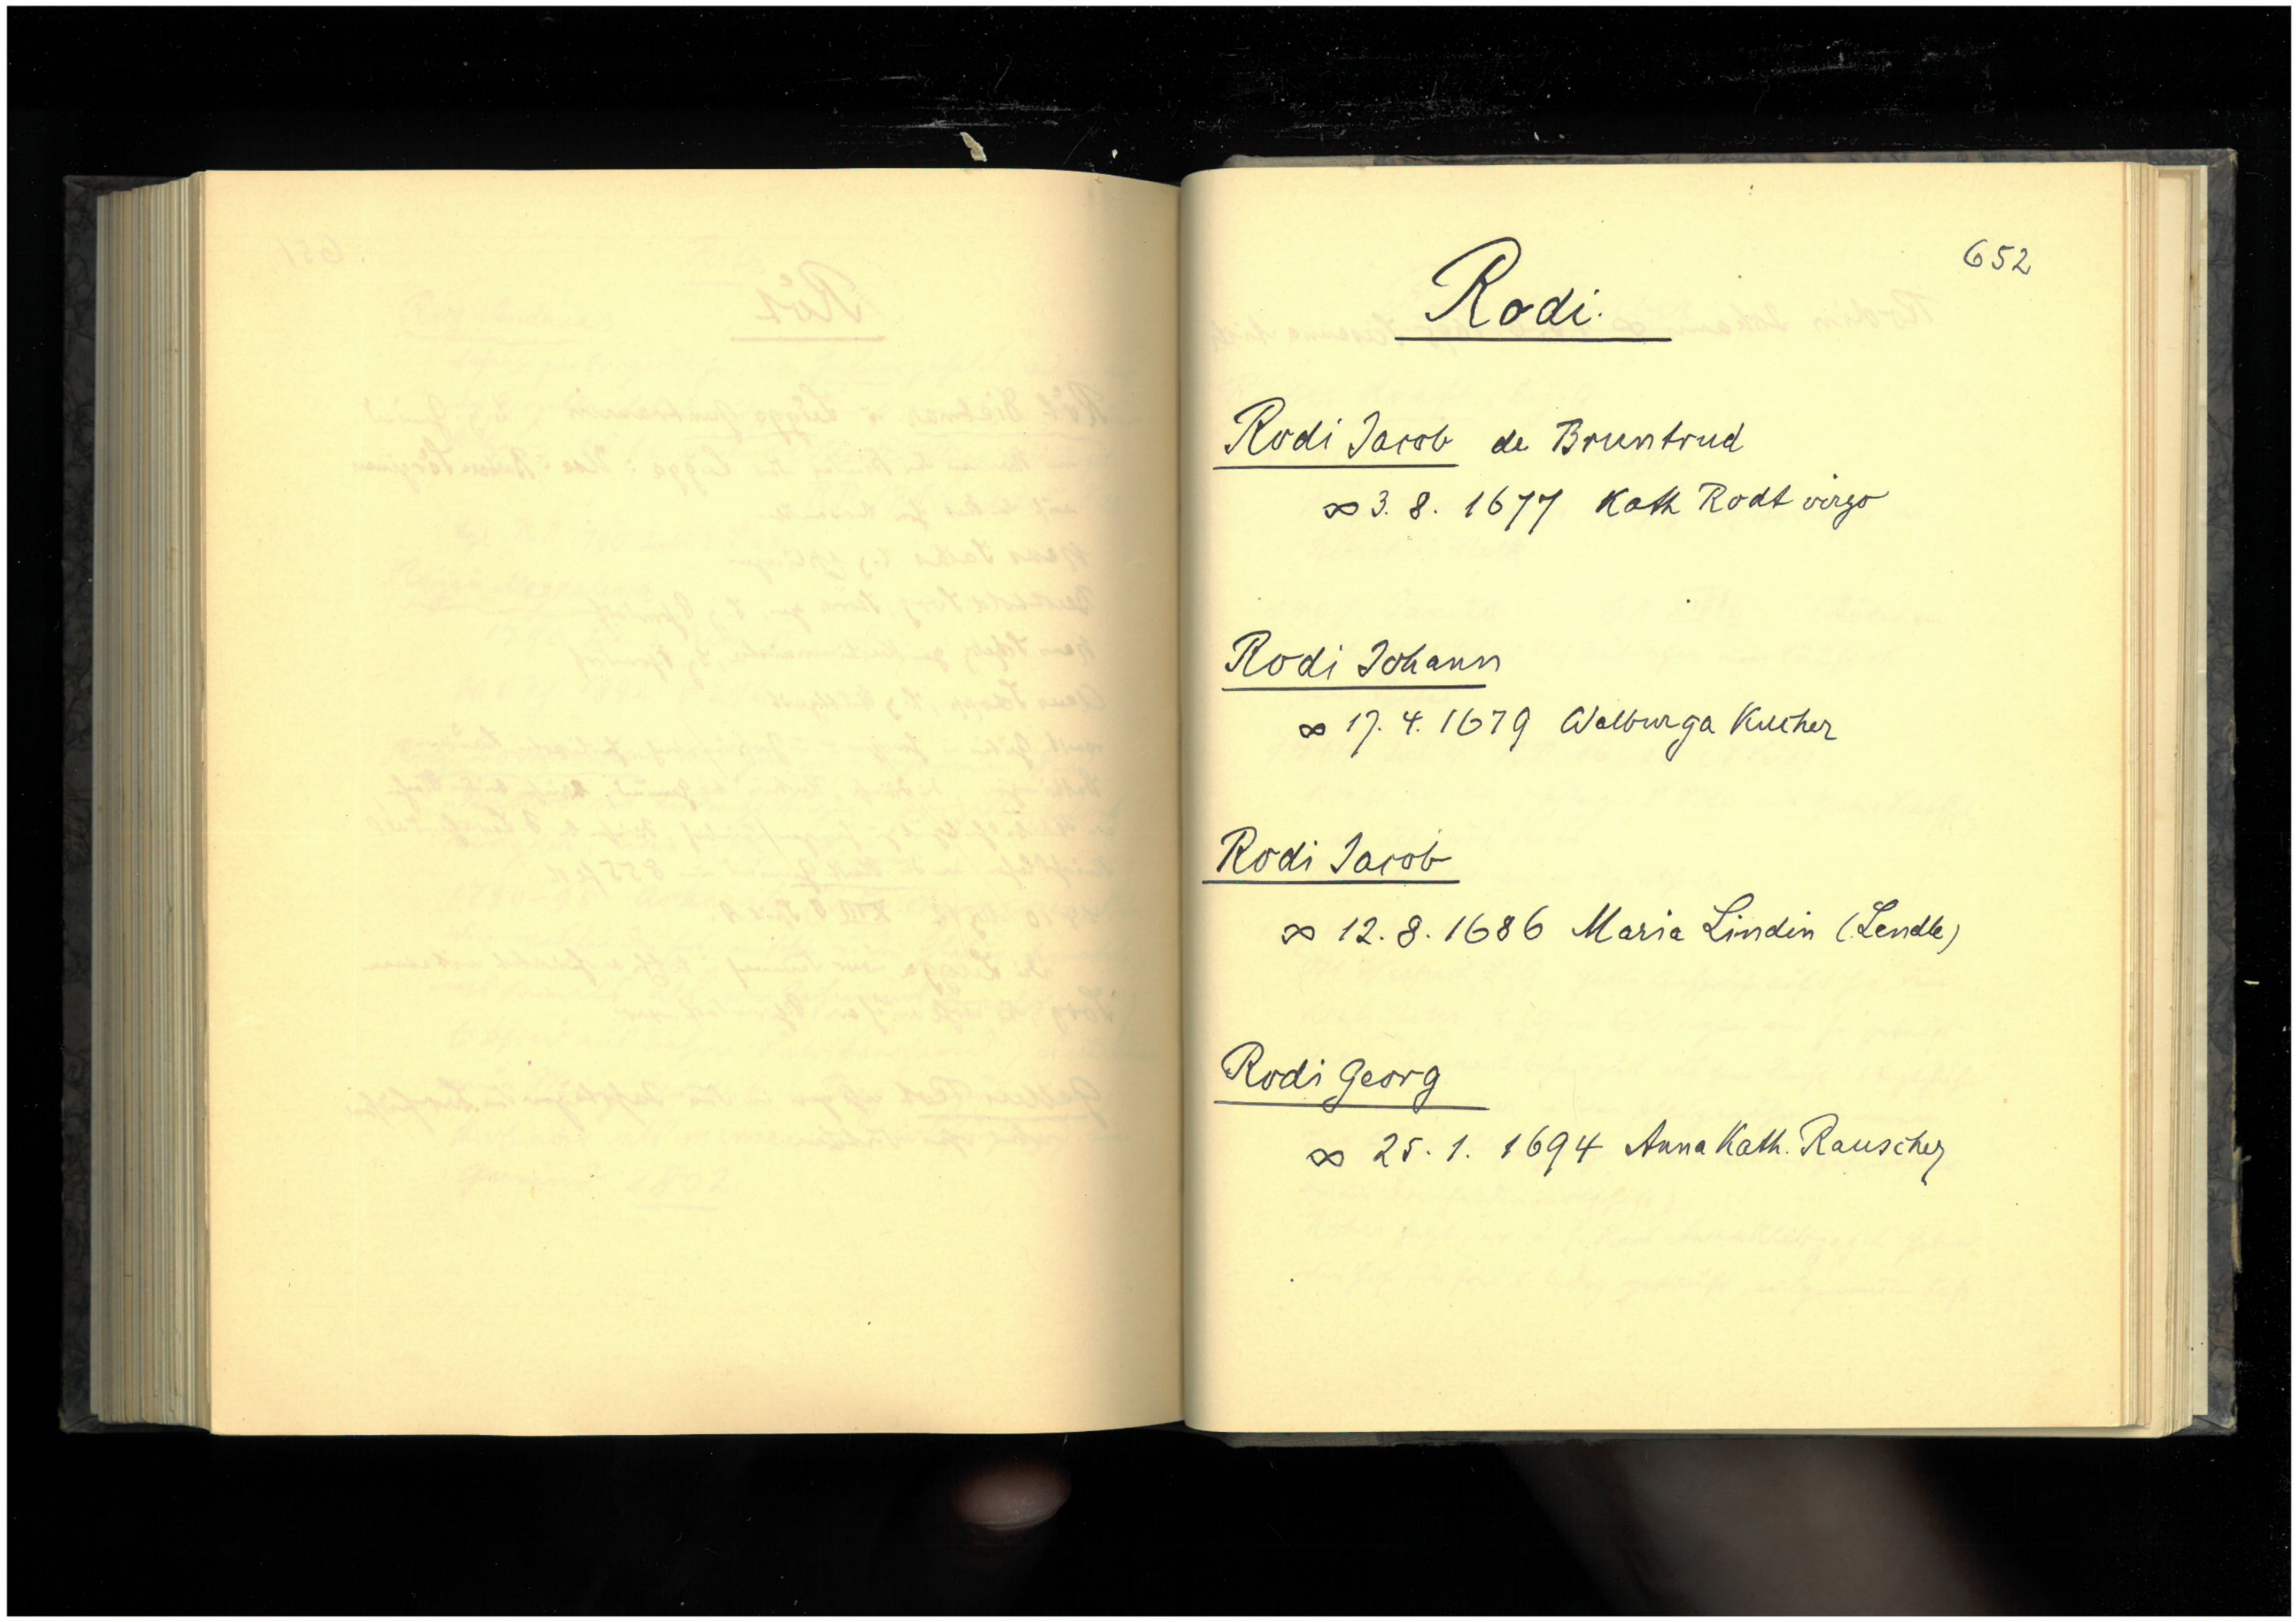 652
Rodi.
Rodi Jacob de Bruntrud
∞ 3. 8. 1677 Kath Rodt virgo
Rodi Johann
∞ 17. 4. 1679 Walburga Kucher
Rodi Jacob
∞ 12. 8. 1686 Maria Lindin (Lendle)
Rodi Georg
∞ 25. 1. 1694 Anna Kath. Rauscher